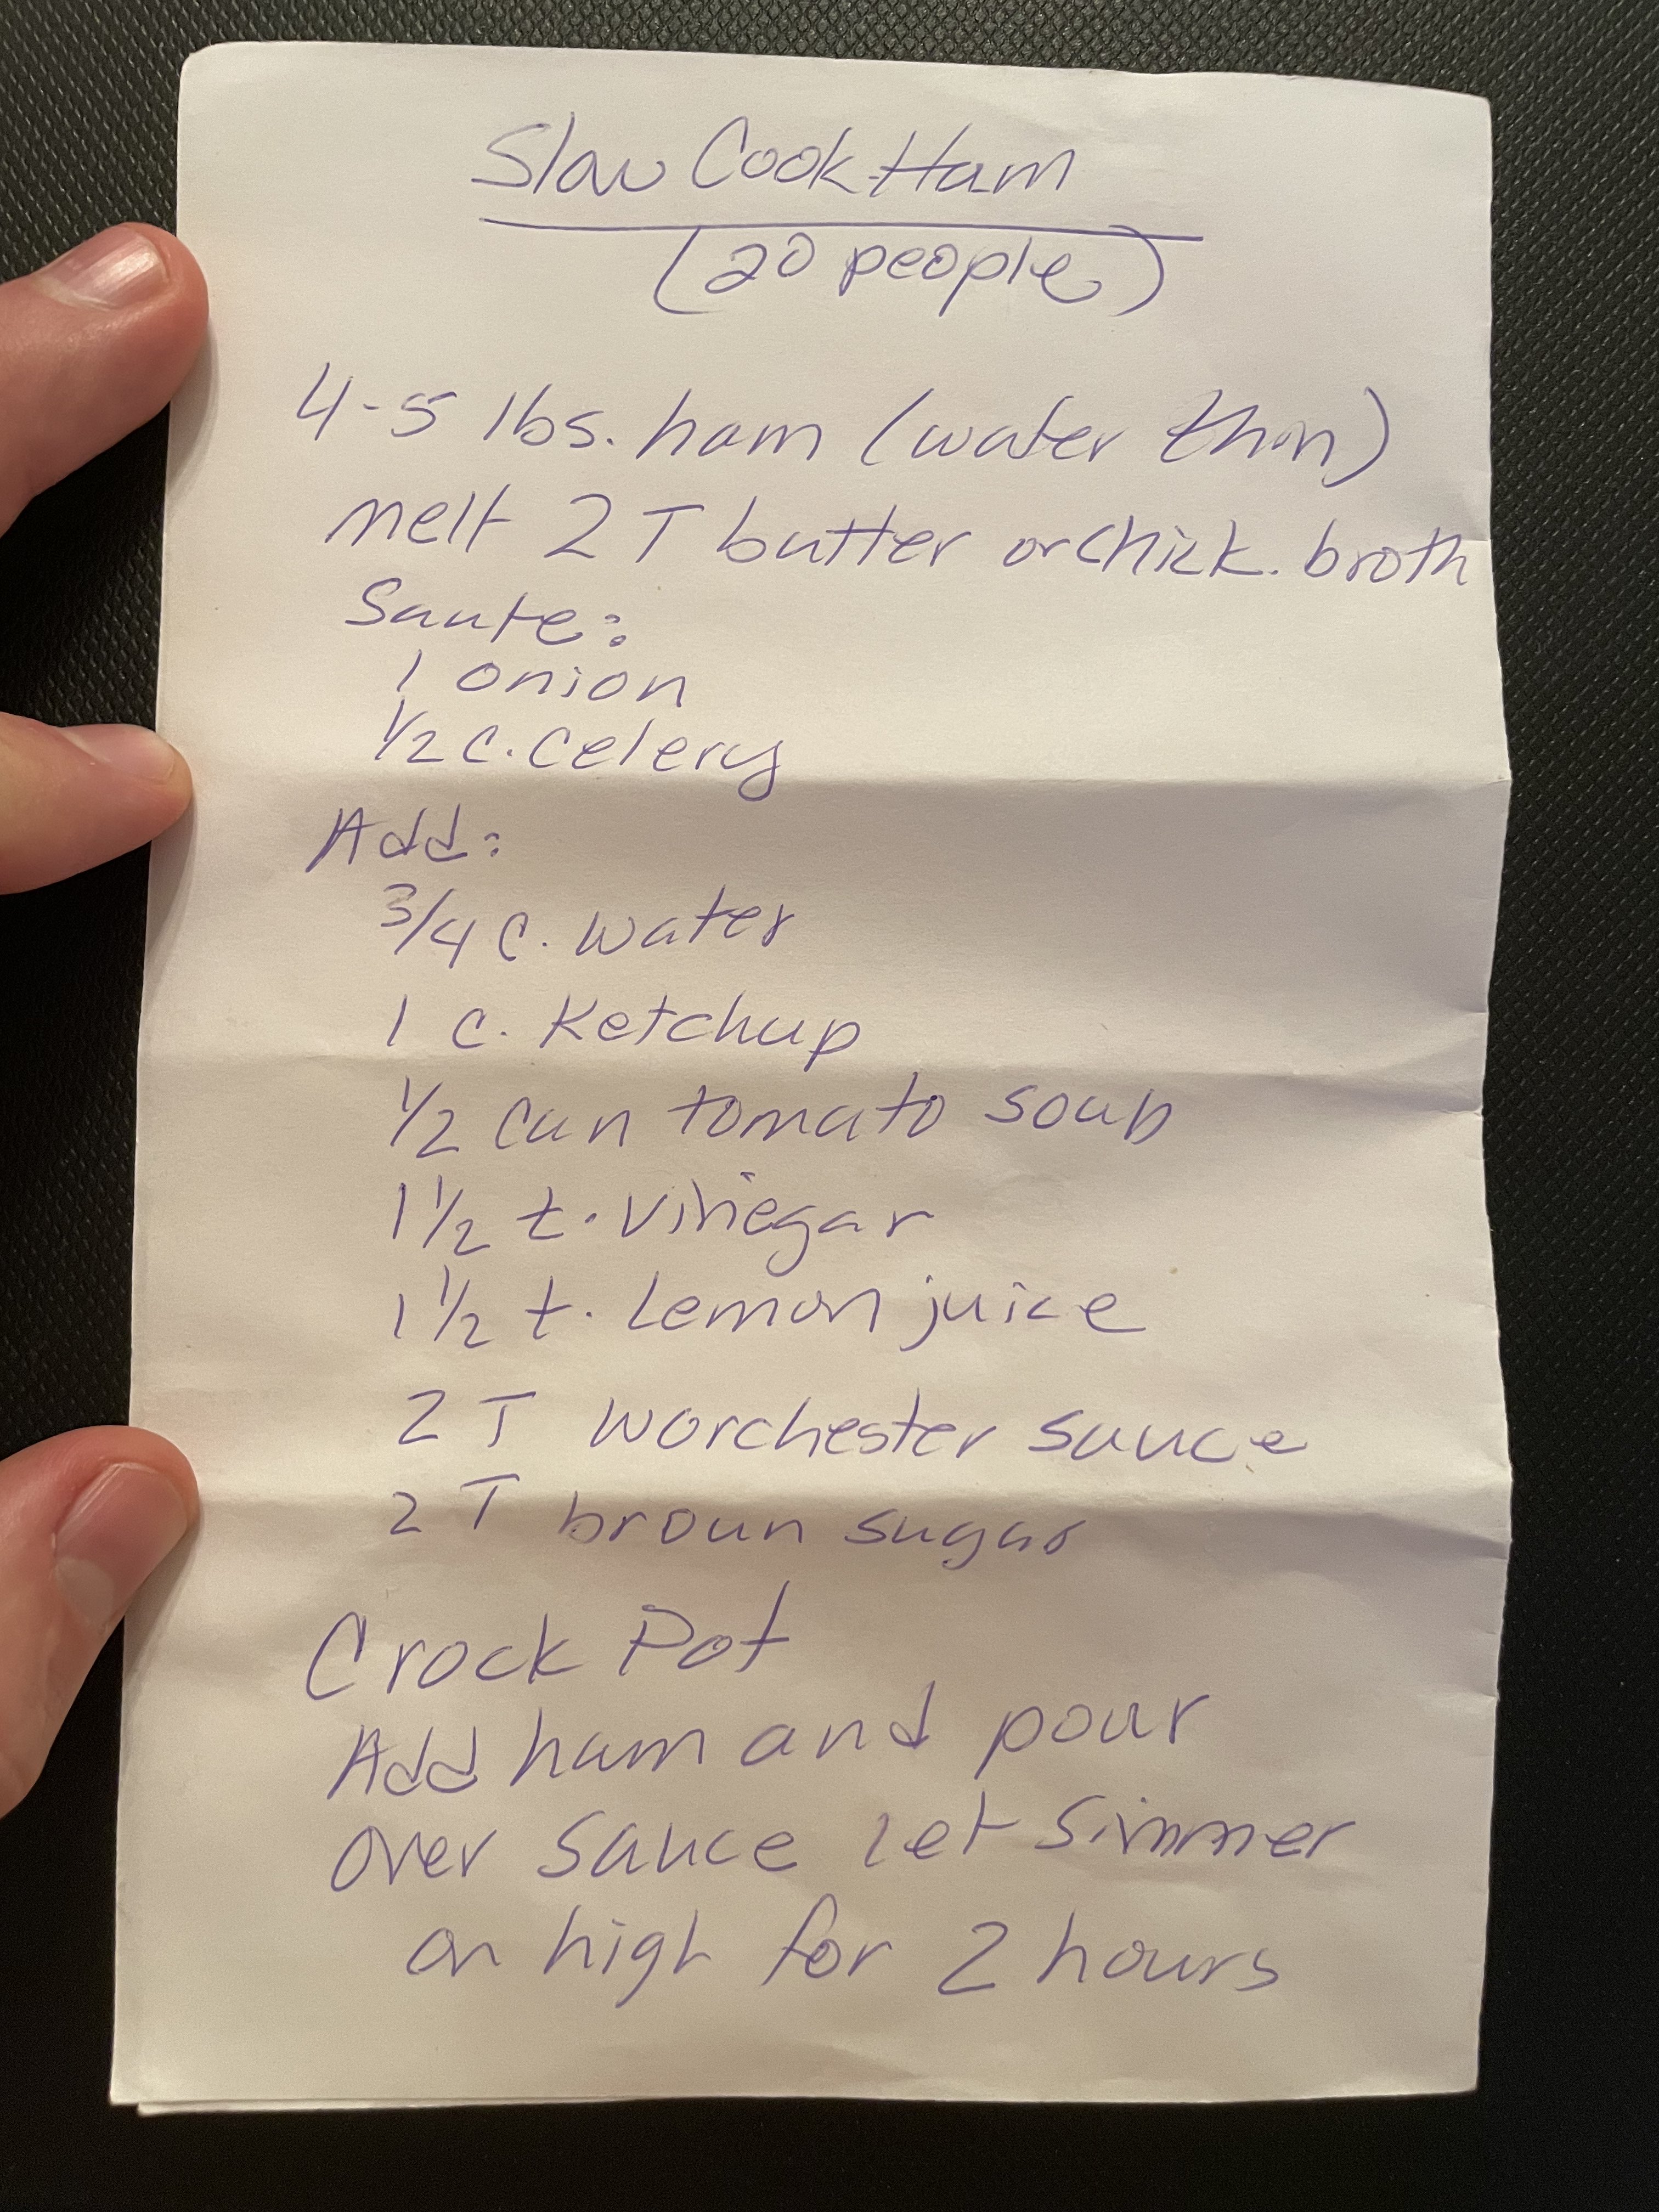 Slow Cook Ham
(20 people)
4-5 lbs. ham (water thin)
melt 2 T butter or chick. broth
Saute:
1 onion
1/2 c. celery
Add:
3/4 c. water
1 c. Ketchup
1/2 can tomato soup
1 1/2 t. vinegar
1 1/2 t. Lemon juice
2 T worchester sauce
2 T broun sugar
Crock Pot
Add ham and pour
over sauce let simmer
on high for 2 hours